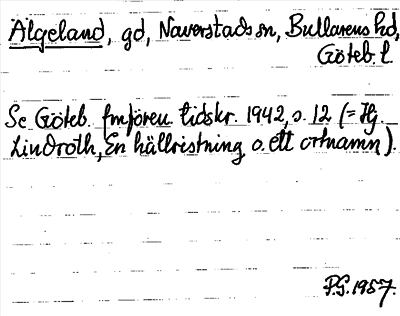 Älgeland, gd, Naverstads sn, Bullarens hd,
Göteb. l.
Se Göteb. fmfören tidskr. 1942, s. 12 (= Hj.
Lindroth, En hällristning o. ett ortnamn).
P.G. 1957.